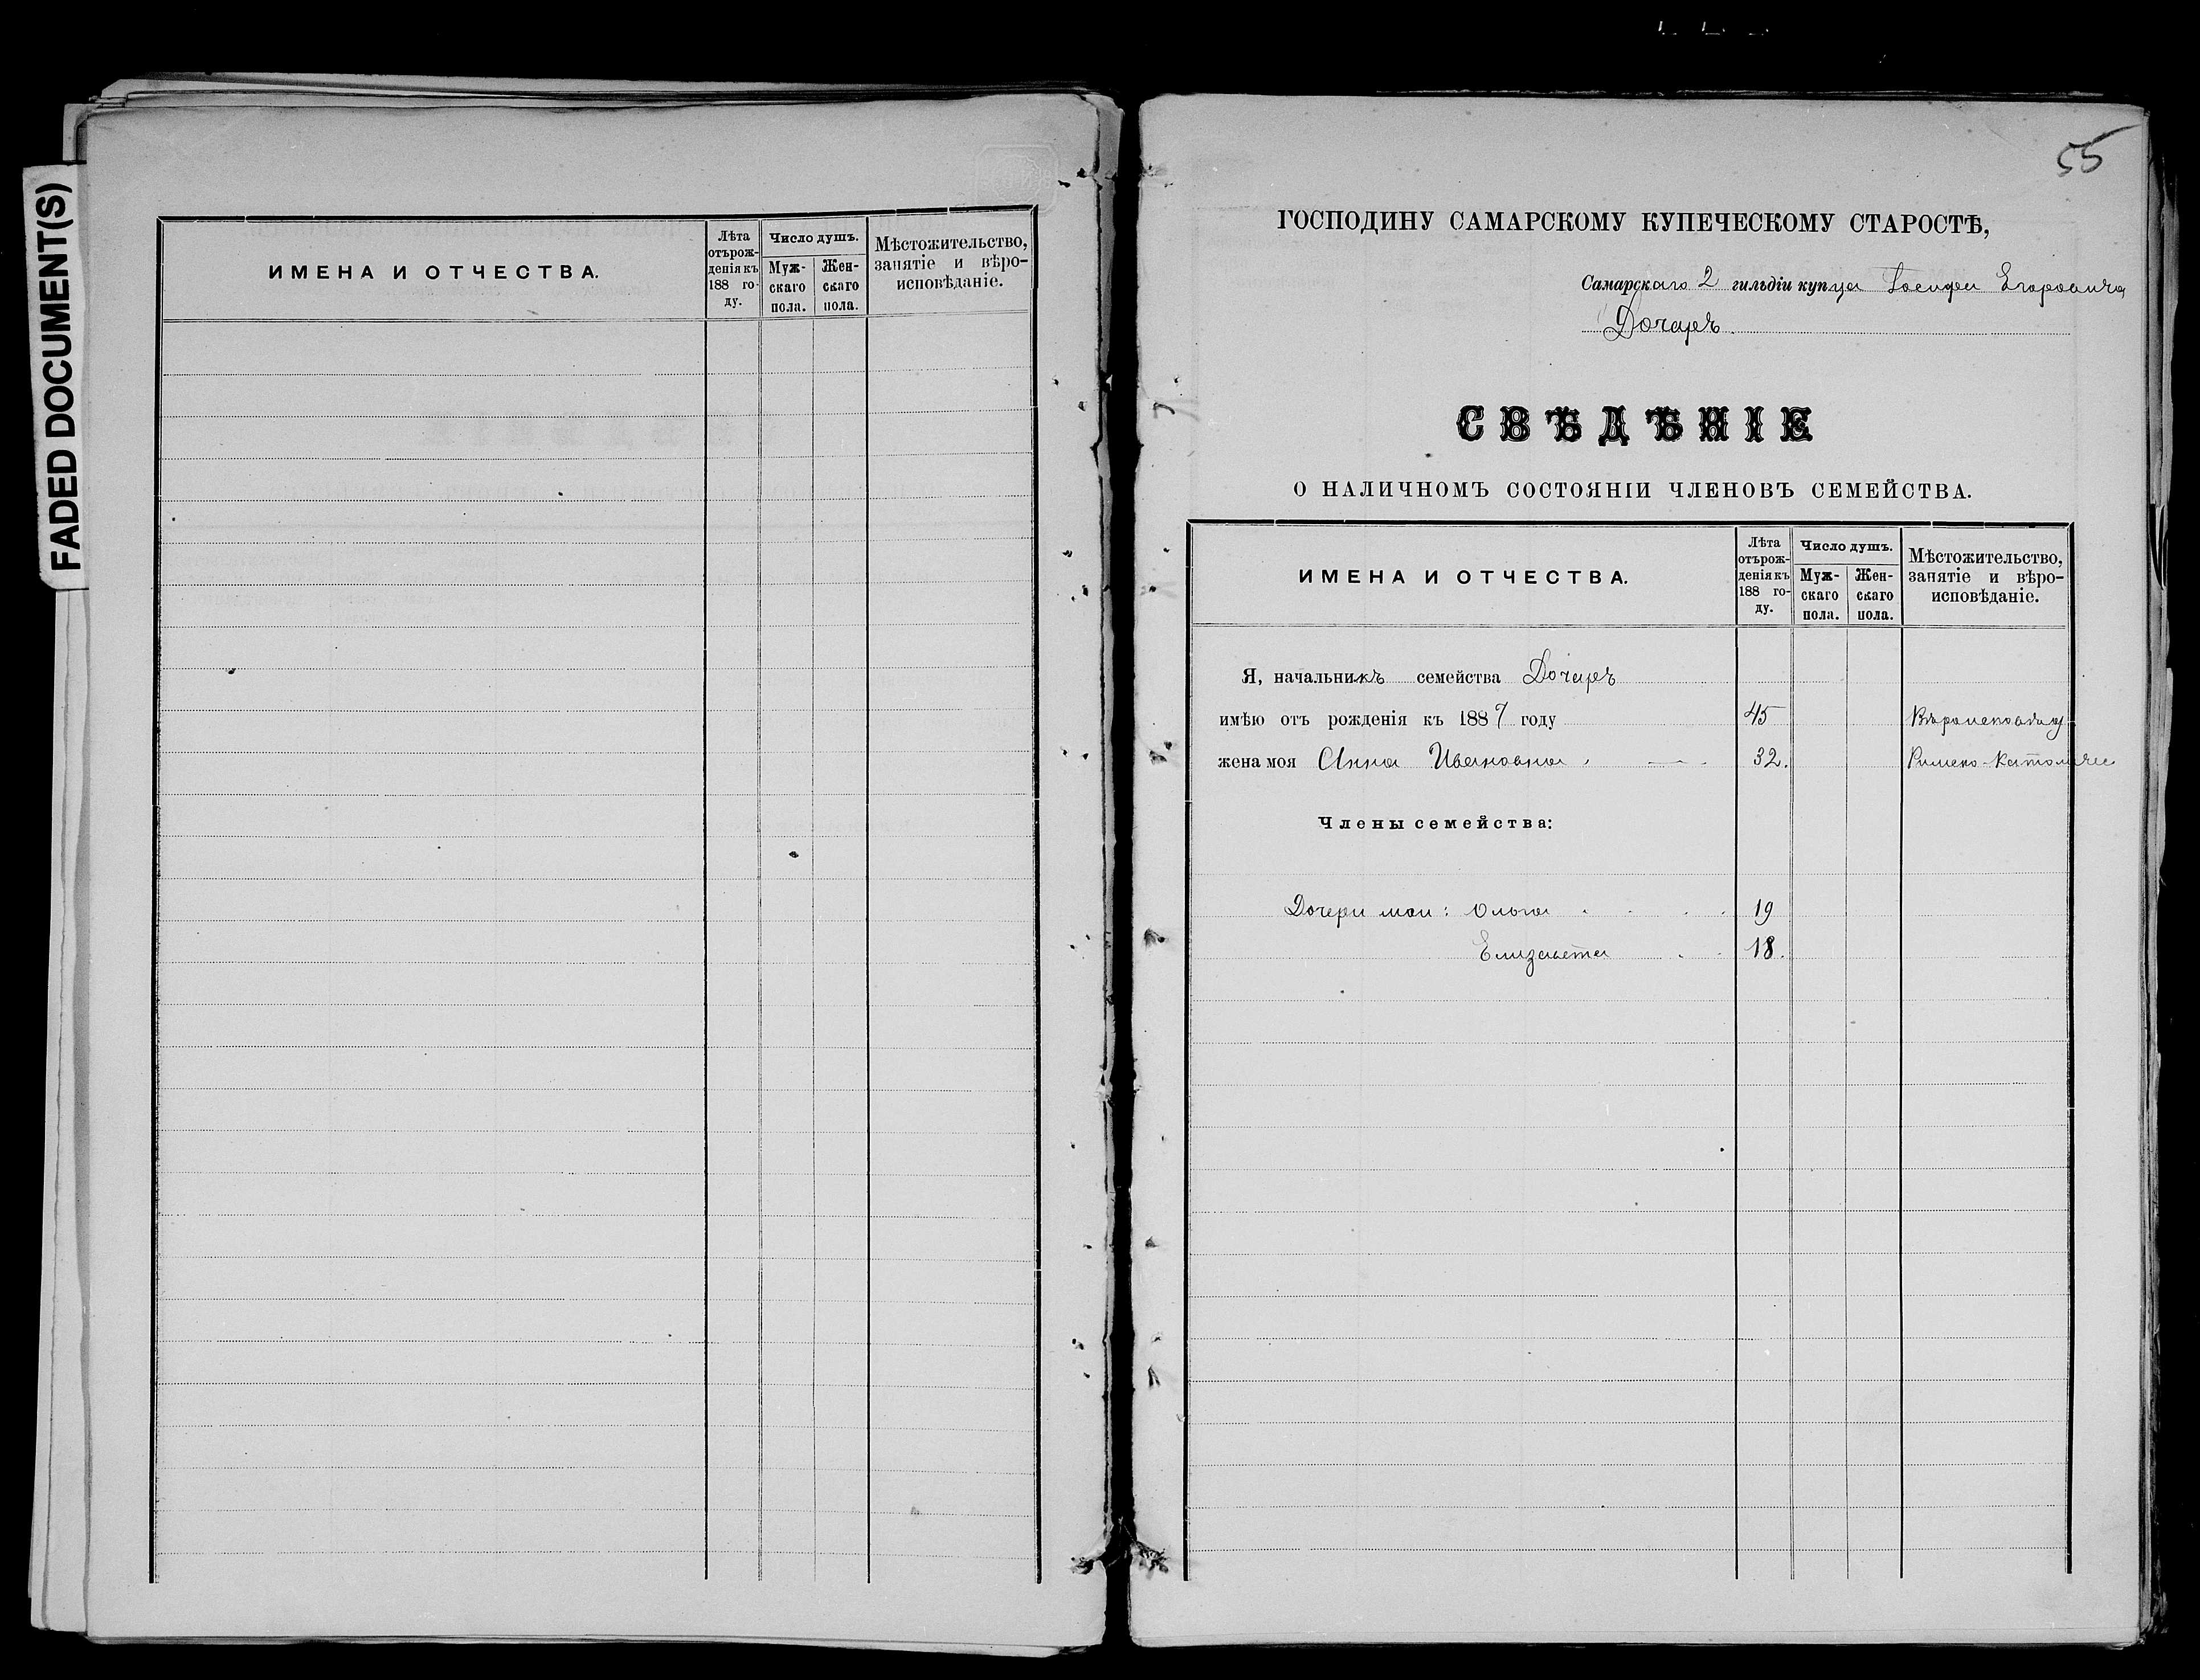 FADED DOCUMENT(S)
ИМЕНА И ОТЧЕСТВА.
Лѣта отърожденія къ 188 году.
Число душъ.
Мужскаго пола.
Женскаго пола.
Мѣстожительство, занятіе и вѣроисповѣданіе.
55
ГОСПОДИНУ САМАРСКОМУ КУПЕЧЕСКОМУ СТАРОСТѢ,
Самарскаго 2 гильдіи купца Іосифа Егоровича
Дочаръ.
СВѢДѢНІЕ
О НАЛИЧНОМЪ СОСТОЯНІИ ЧЛЕНОВЪ СЕМЕЙСТВА.
ИМЕНА И ОТЧЕСТВА.
Лѣта отърожденія къ 188 году.
Число душъ.
Мужскаго пола.
Женскаго пола.
Мѣстожительство, занятіе и вѣроисповѣданіе.
Я, начальникъ семейства Дочаръ
имѣю отъ рожденія къ 1887 году 45
жена моя Анна Ивановна 32. Римско-Католичес
Члены семейства:
Дочери мои: Ольга 19
Елизавета 18.